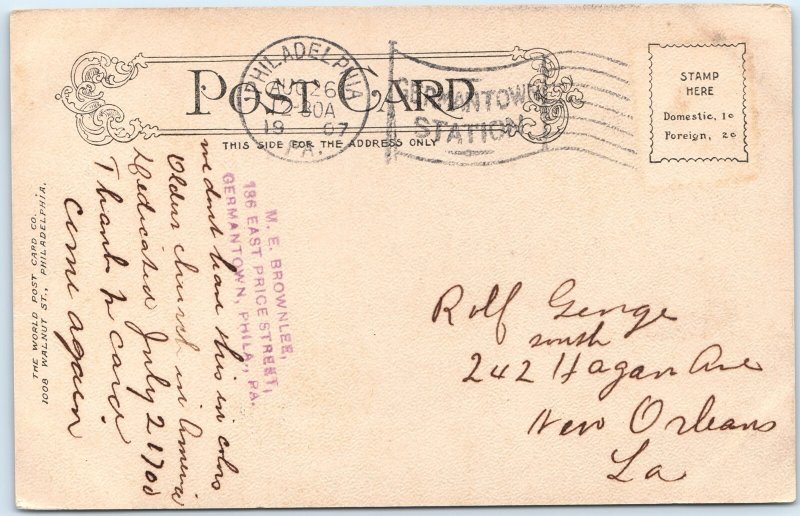 PHILADELPHIA
AUG 26
12 30A
1907
PA.
GERMANTOWN
STATION
POST CARD
THIS SIDE FOR THE ADDRESS ONLY
STAMP
HERE
Domestic, 1c
Foreign, 2c
THE WORLD POST CARD CO.
1008 WALNUT ST., PHILADELPHIA.
M. E. BROWNLEE,
136 EAST PRICE STREET,
GERMANTOWN, PHILA., PA.
we dont have this in colors
Oldest church in America
Dedicated July 2 1700
Thanks for card.
come again
Rolf George
south
242 Hagan Ave
New Orleans
La